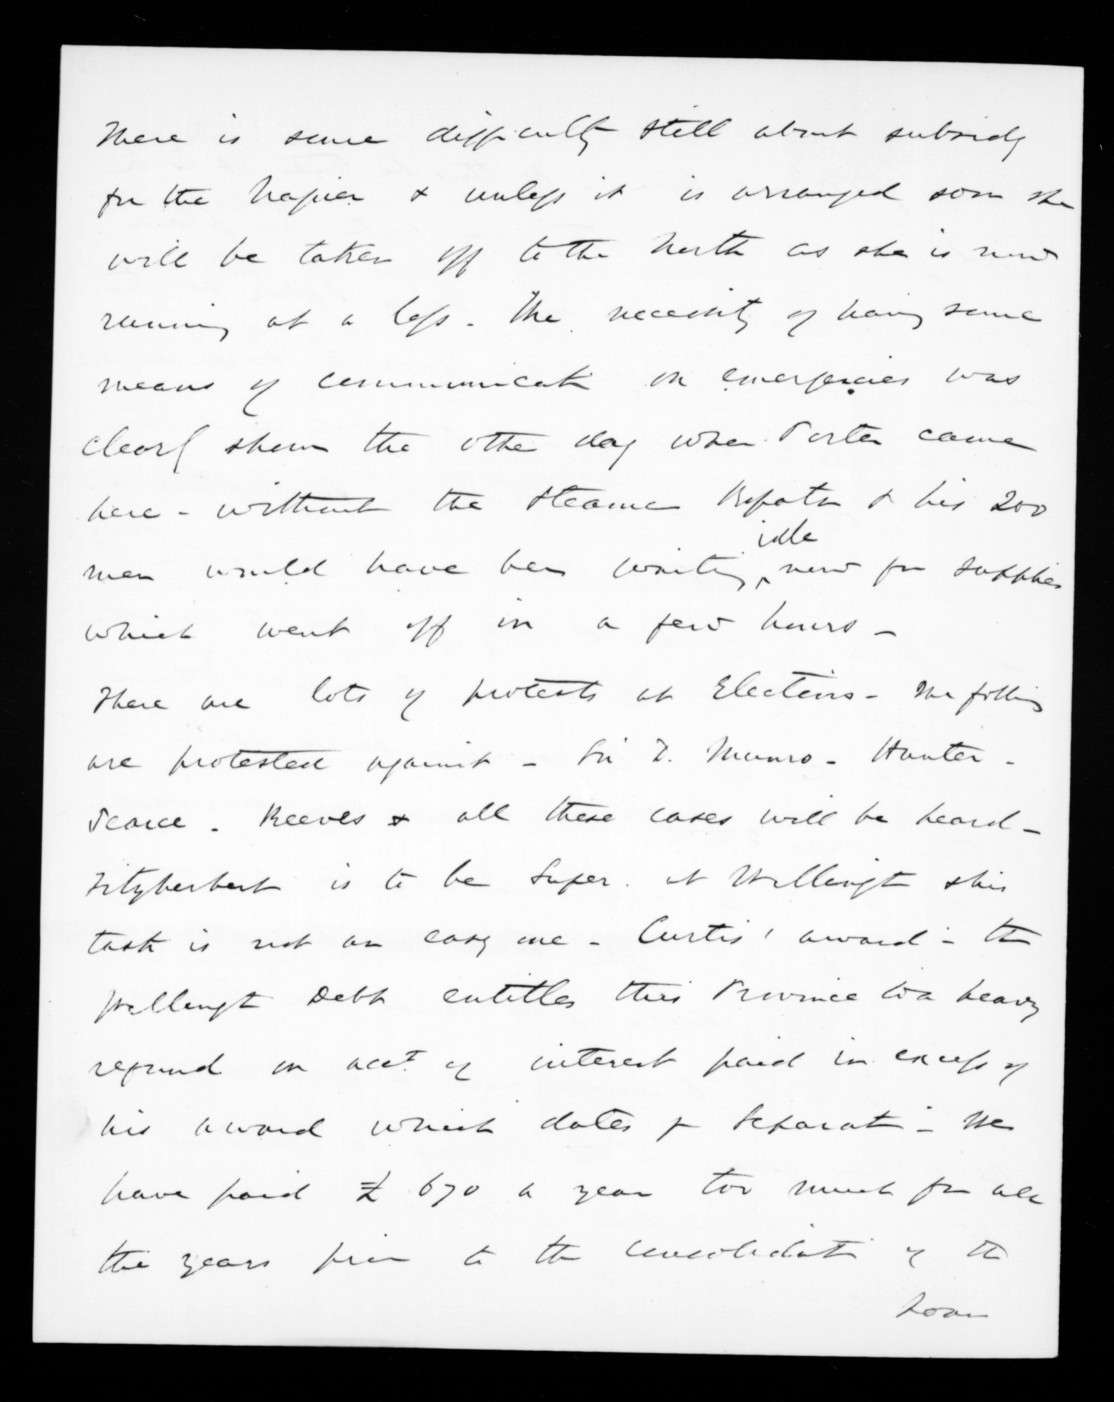 There is some difficulty still about subsidy
for the Napier & unless it is arranged soon she
will be taken off to the North as she is now
running at a loss. The necessity of having some
means of communicatn on emergencies was
clearly shewn the other day when Porter came
here - without the steamer Ropata & his 200
men would have been waiting idle now for supplies
which went off in a few hours -
There are lots of protests at Elections - The follg
are protested against - Sir D. Munro - Hunter -
Pearce - Reeves & all these cases will be heard -
Fitzherbert is to be Super. at Wellingt & his
task is not an easy one - Curtis' award in the
Wellingt Debt entitles this Province to a heavy
refund on acct. of interest paid in excess of
his award which dates fr Separatn - We
have paid £670 a year too much for all
the years prior to the Consolidatn of the
Loan